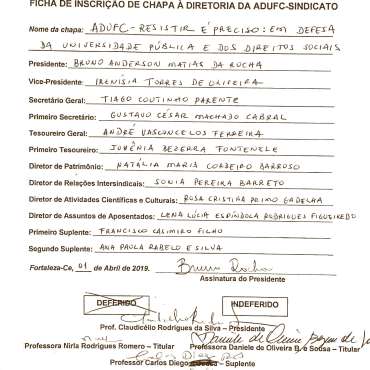 FICHA DE INSCRIÇÃO DE CHAPA À DIRETORIA DA ADUFC-SINDICATO
Nome da chapa: ADUFC - RESISTIR É PRECISO: EM DEFESA
DA UNIVERSIDADE PÚBLICA E DOS DIREITOS SOCIAIS
Presidente: BRUNO ANDERSON MATIAS DA ROCHA
Vice-Presidente: IRENÍSIA TORRES DE OLIVEIRA
Secretário Geral: TIAGO COUTINHO PARENTE
Primeiro Secretário: GUSTAVO CÉSAR MACHADO CABRAL
Tesoureiro Geral: ANDRÉ VASCONCELOS FERREIRA
Primeiro Tesoureiro: JUVÊNIA BEZERRA FONTENELE
Diretor de Patrimônio: NATÁLIA MARIA CORDEIRO BARROSO
Diretor de Relações Intersindicais: SONIA PEREIRA BARRETO
Diretor de Atividades Científicas e Culturais: ROSA CRISTINA PRIMO GADELHA
Diretor de Assuntos de Aposentados: LENA LÚCIA ESPÍNDOLA RODRIGUES FIGUEIREDO
Primeiro Suplente: FRANCISCO CASIMIRO FILHO
Segundo Suplente: ANA PAULA RABELO E SILVA
Fortaleza-Ce, 01 de Abril de 2019. Bruno Rocha
Assinatura do Presidente
DEFERIDO INDEFERIDO
Prof. Claudicélio Rodrigues da Silva – Presidente
Professora Nirla Rodrigues Romero – Titular Professora Daniele de Oliveira B. e Sousa – Titular
Professor Carlos Diego – Suplente